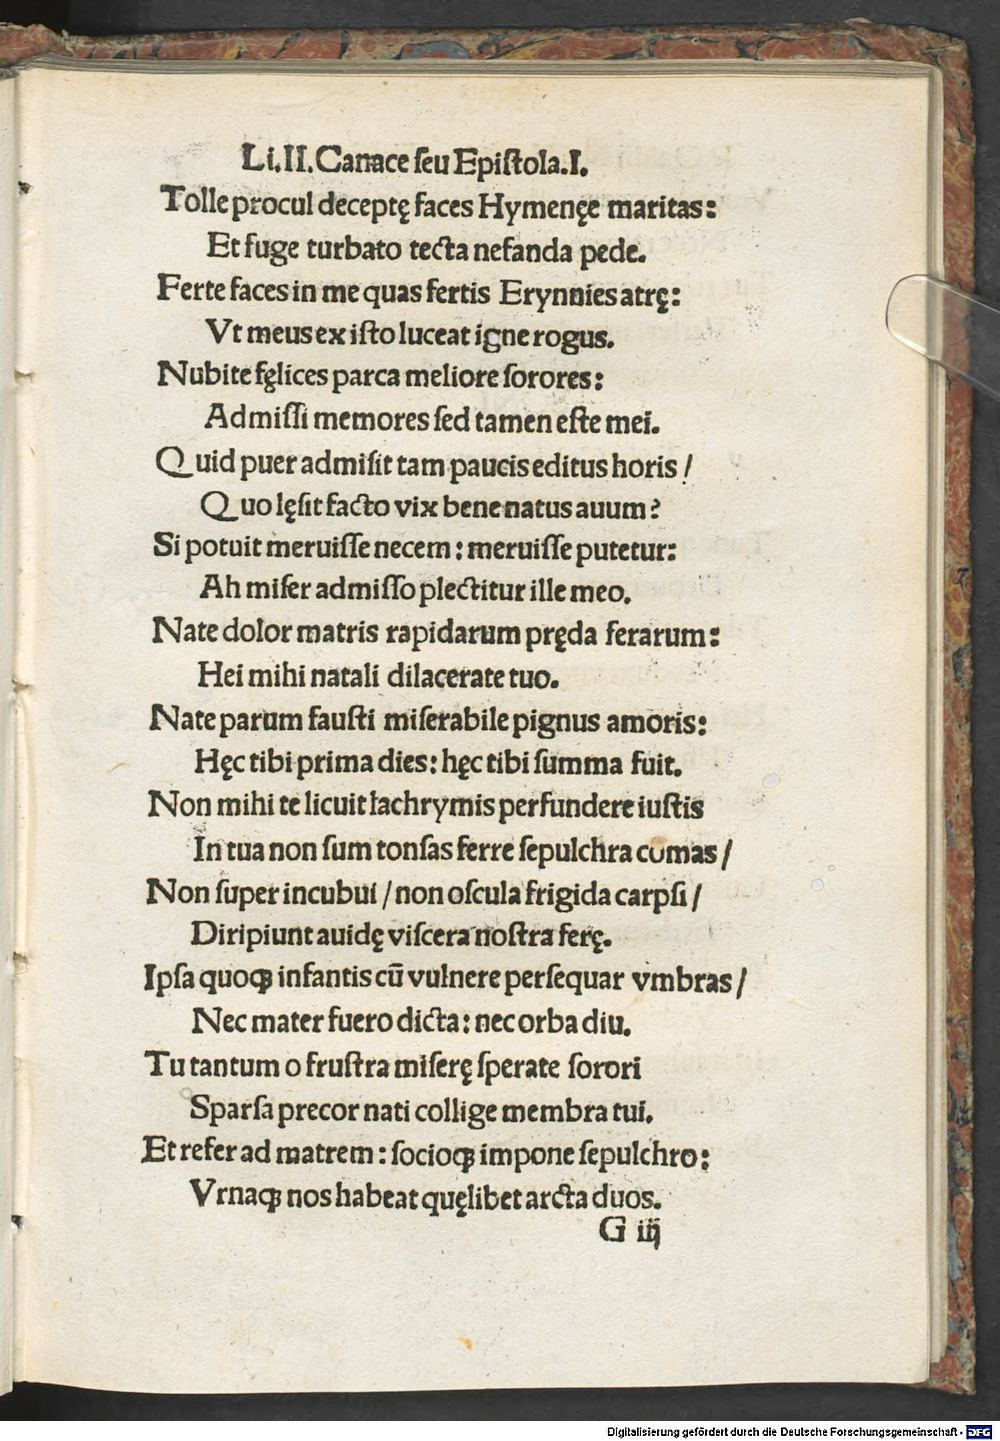 Li.II.Canace ſeu Epiſtola.I.
Tolle procul deceptę faces Hymenęe maritas:
Et fuge turbato tecta nefanda pede.
Ferte faces in me quas fertis Erynnies atrę:
Vt meus ex iſto luceat igne rogus.
Nubite fęlices parca meliore ſorores:
Admiſſi memores ſed tamen eſte mei.
Quid puer admiſit tam paucis editus horis /
Quo lęſit facto vix bene natus auum?
Si potuit meruiſſe necem: meruiſſe putetur:
Ah miſer admiſſo plectitur ille meo.
Nate dolor matris rapidarum pręda ferarum:
Hei mihi natali dilacerate tuo.
Nate parum fauſti miſerabile pignus amoris:
Hęc tibi prima dies: hęc tibi ſumma fuit.
Non mihi te licuit lachrymis perfundere iuſtis
In tua non ſum tonſas ferre ſepulchra comas /
Non ſuper incubui / non oſcula frigida carpſi /
Diripiunt auidę viſcera noſtra ferę.
Ipſa quoqꝫ infantis cū vulnere perſequar vmbras /
Nec mater fuero dicta: nec orba diu.
Tu tantum o fruſtra miſerę ſperate ſorori
Sparſa precor nati collige membra tui.
Et refer ad matrem: ſocioqꝫ impone ſepulchro:
Vrnaqꝫ nos habeat quęlibet arcta duos.
G iij
Digitalisierung gefördert durch die Deutsche Forschungsgemeinschaft - DFG